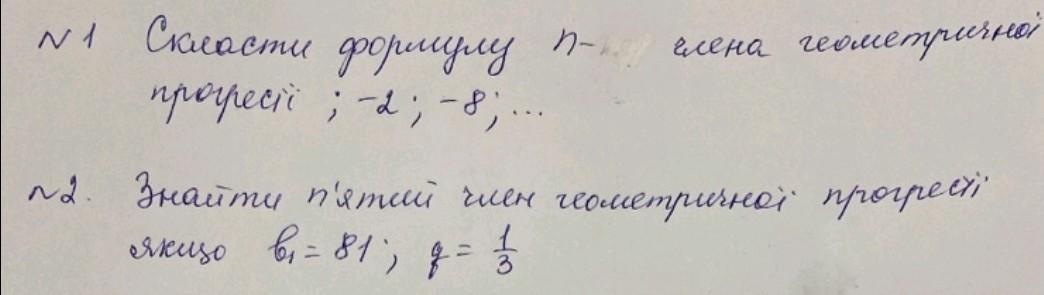 №1 Скласти формулу n- члена геометричної
прогресії ; -2 ; -8 ; ...
№2. Знайти п'ятий член геометричної прогресії
якщо b₁ = 81 ; q = 1/3